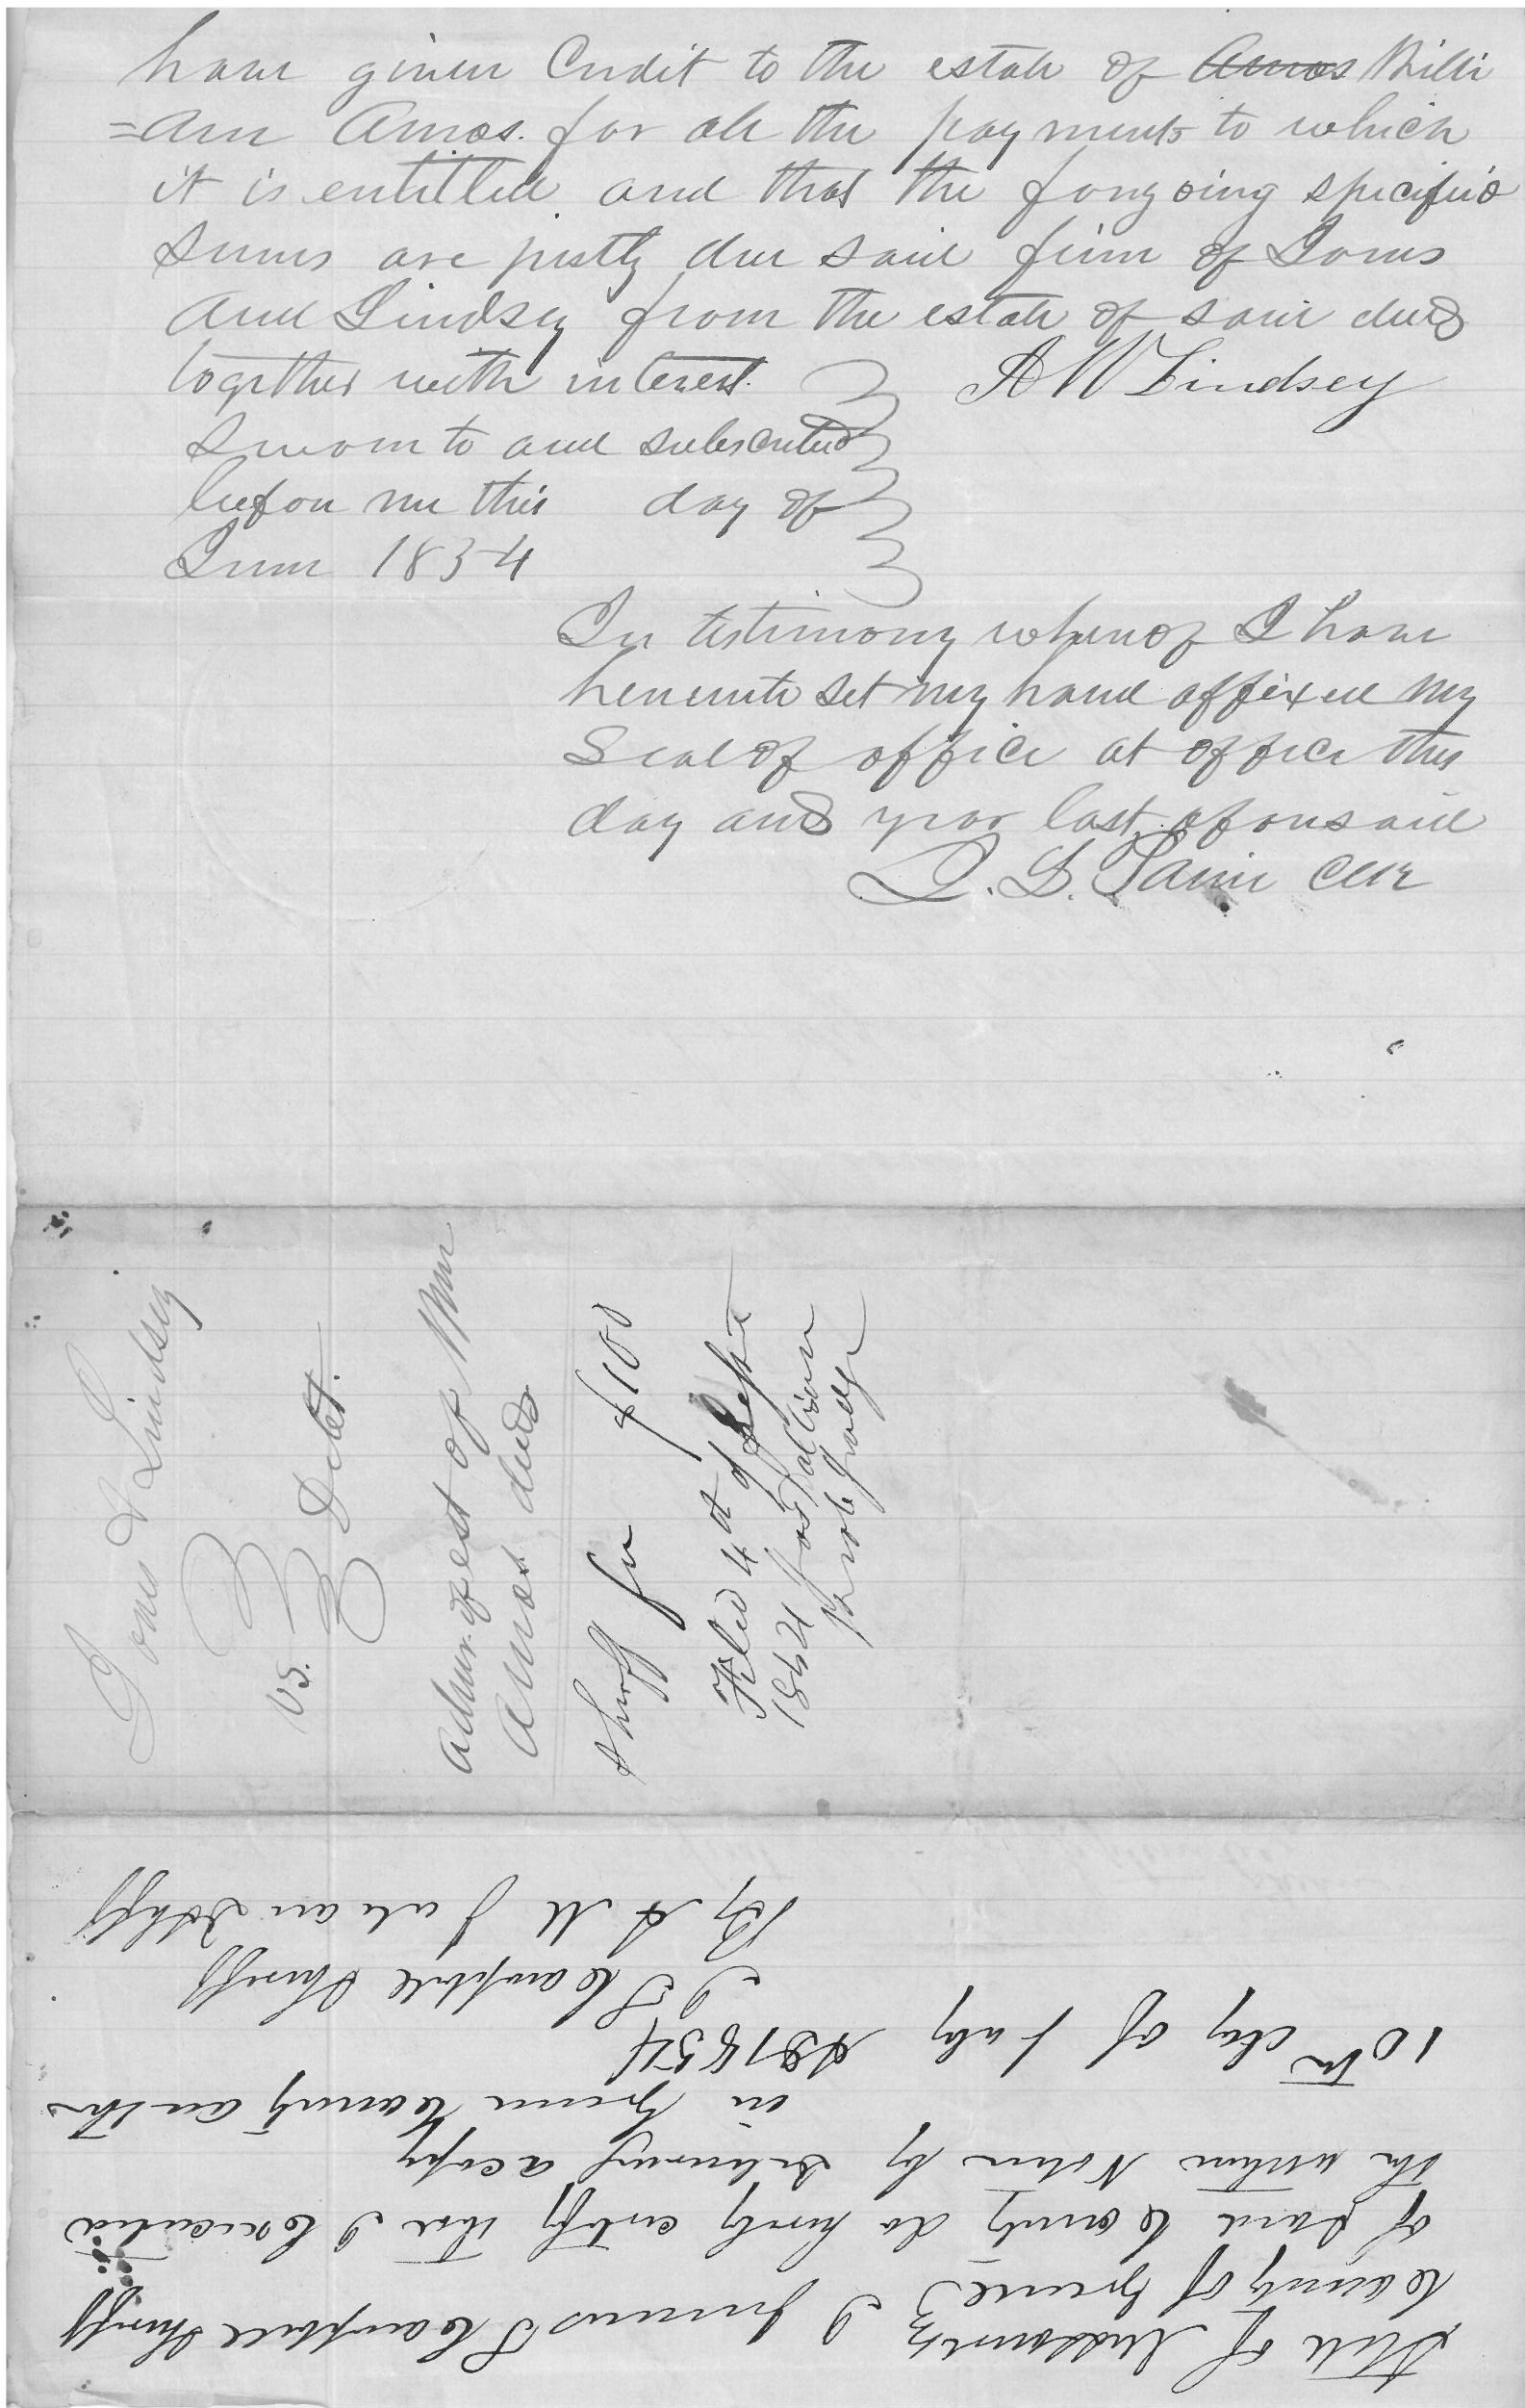 have given Credit to the estate of Amos Willi
=am Amos. for all the payments to which
it is entitled and that the forgoing specified
Sums are justly due said firm of Jones
and Lindsey from the estate of said decd
together with interest.
A W Lindsey
Sworn to and subscribed
before me this day of
June 1854
In testimony whereof I have
hereunto set my hand affixed my
Seal of office at office this
day and year last aforesaid
Clk
Jones & Lindsey
vs. Debt.
Admr. of est of Wm
Amos decd
Shriff fee $1 00
Filed 4th of Sept
1854
Prob Judge
State of Missouri
County of Greene
I Junius T Campbell Shriff
of said County do hereby certify that I Executed
the within Notice by delivering a copy
in Greene County on the
10th day of July AD 1854
J T Campbell Shriff
By A M Julian D Shff